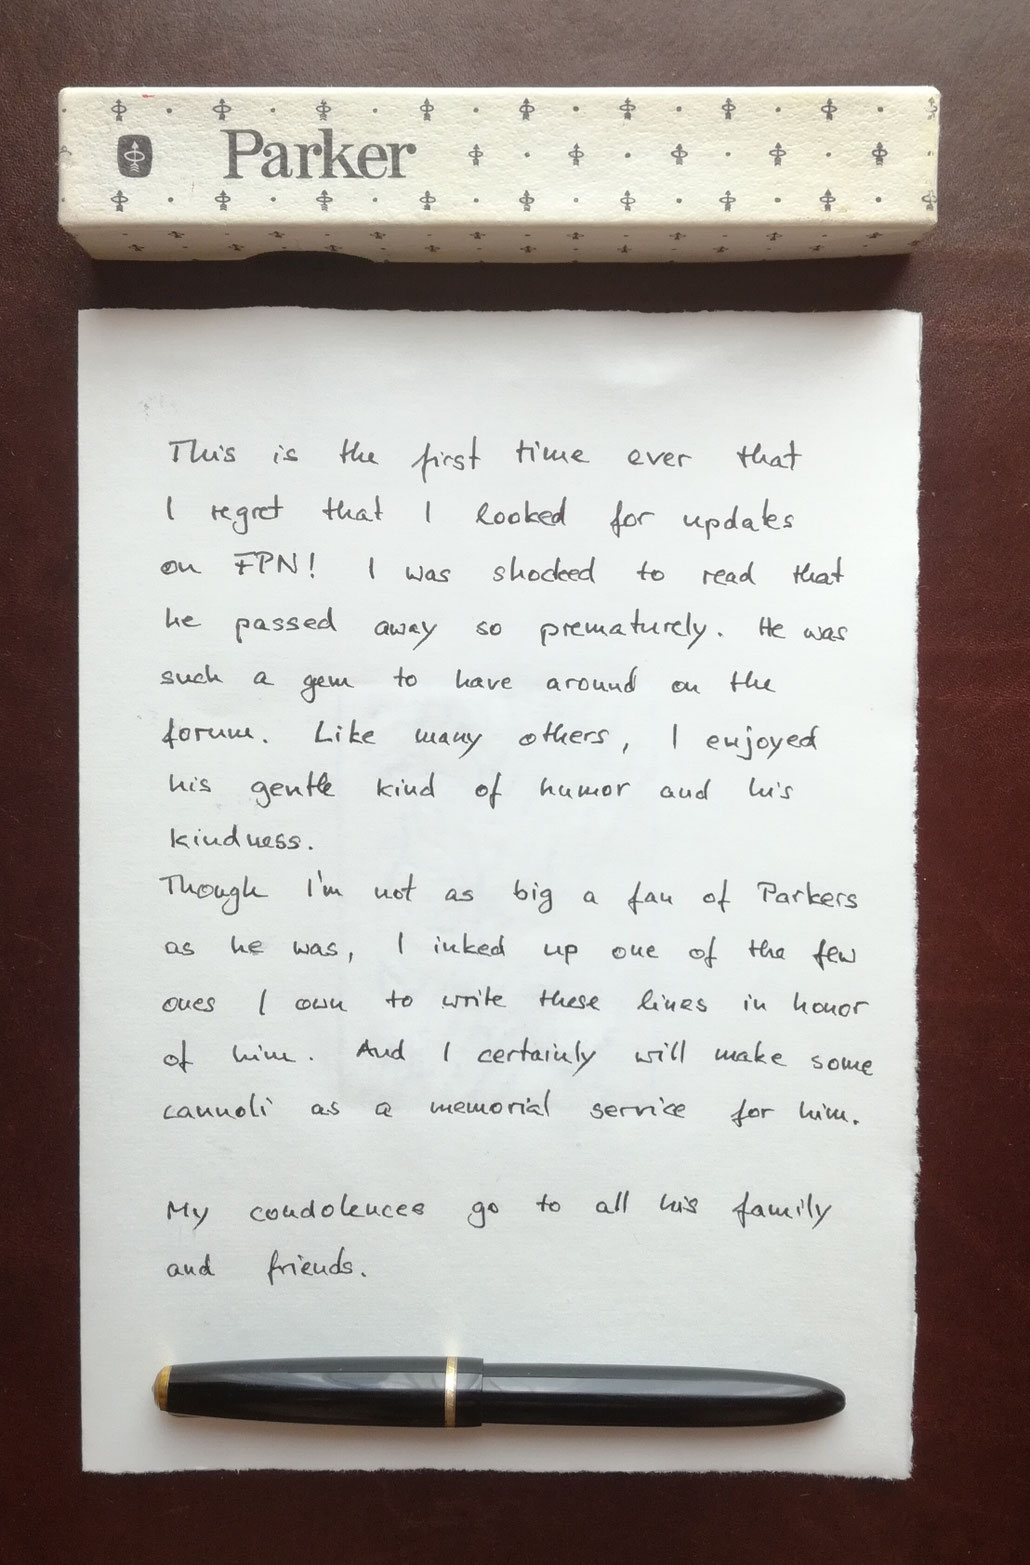 Parker
This is the first time ever that
I regret that I looked for updates
on FPN! I was shocked to read that
he passed away so prematurely. He was
such a gem to have around on the
forum. Like many others, I enjoyed
his gentle kind of humor and his
kindness.
Though I'm not as big a fan of Parkers
as he was, I inked up one of the few
ones I own to write these lines in honor
of him. And I certainly will make some
cannoli as a memorial service for him.
My condolences go to all his family
and friends.